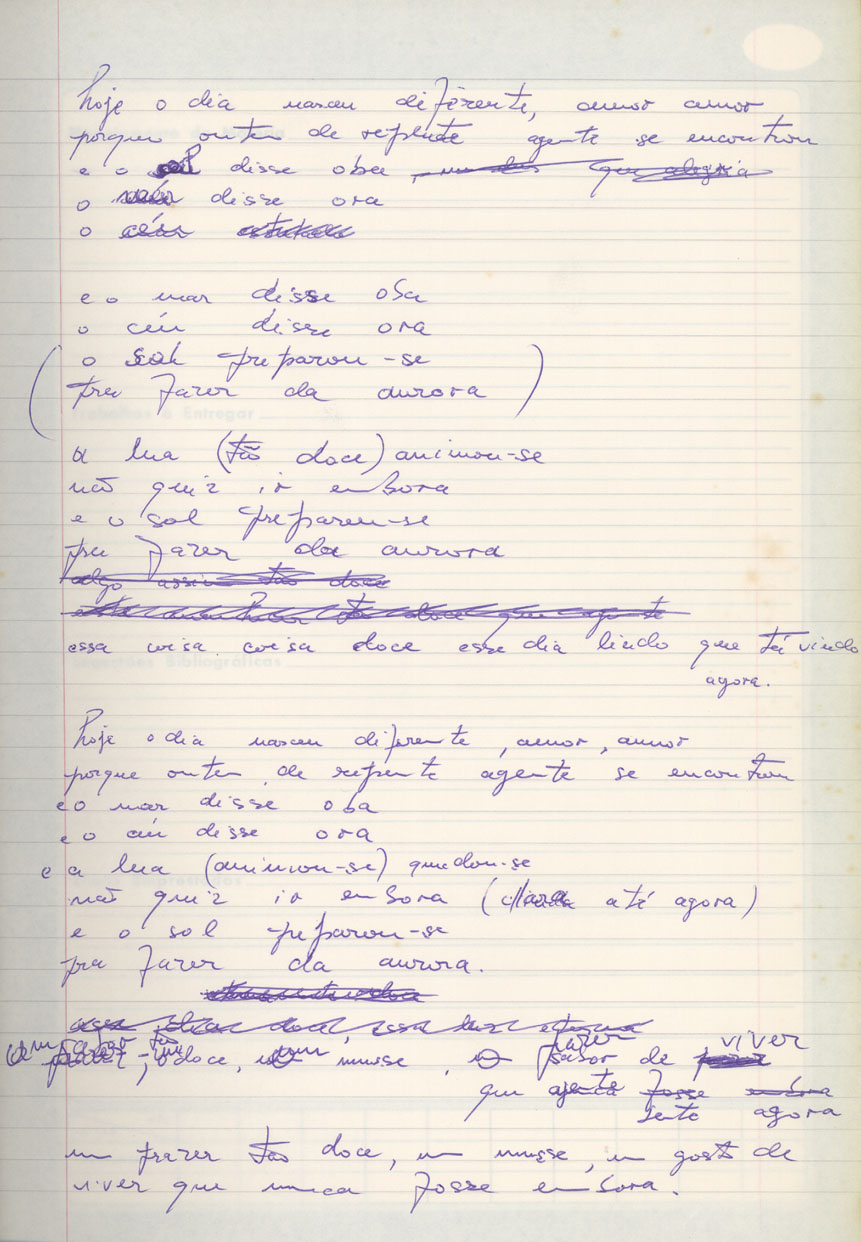 hoje o dia nasceu diferente, amor amor
porque ontem de repente agente se encontrou
e o sol disse oba, que alegria
o céu disse ora
o céu
e o mar disse oba
o céu disse ora
(o sol preparou-se
pra fazer da aurora)
a lua (tão doce) animou-se
não quiz ir embora
e o sol preparou-se
pra fazer da aurora
algo assim tão doce
essa coisa coisa doce esse dia lindo que tá vindo
agora.
hoje o dia nasceu diferente, amor, amor
porque ontem de repente agente se encontrou
e o mar disse oba
e o céu disse ora
e a lua (animou-se) quedou-se
não quiz ir embora (clara até agora)
e o sol preparou-se
pra fazer da aurora.
tão doce, um musse, sabor de viver
que agente fosse embora
sente agora
um prazer tão doce, um musse, um gosto de
viver que nunca fosse embora.